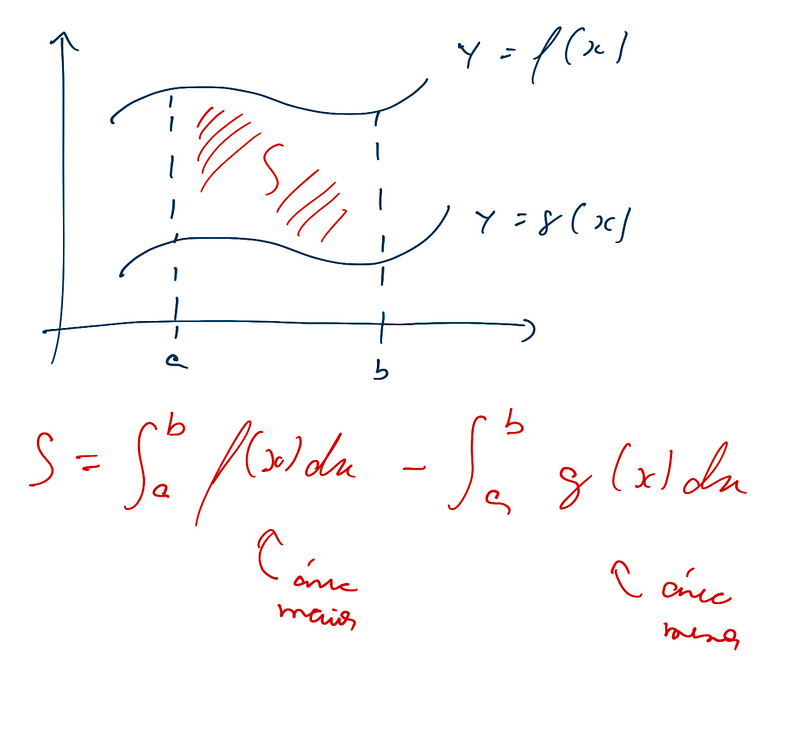 y = f(x)
S
y = g(x)
a b
S = ∫_a^b f(x)dx - ∫_a^b g(x)dx
área área
maior menor